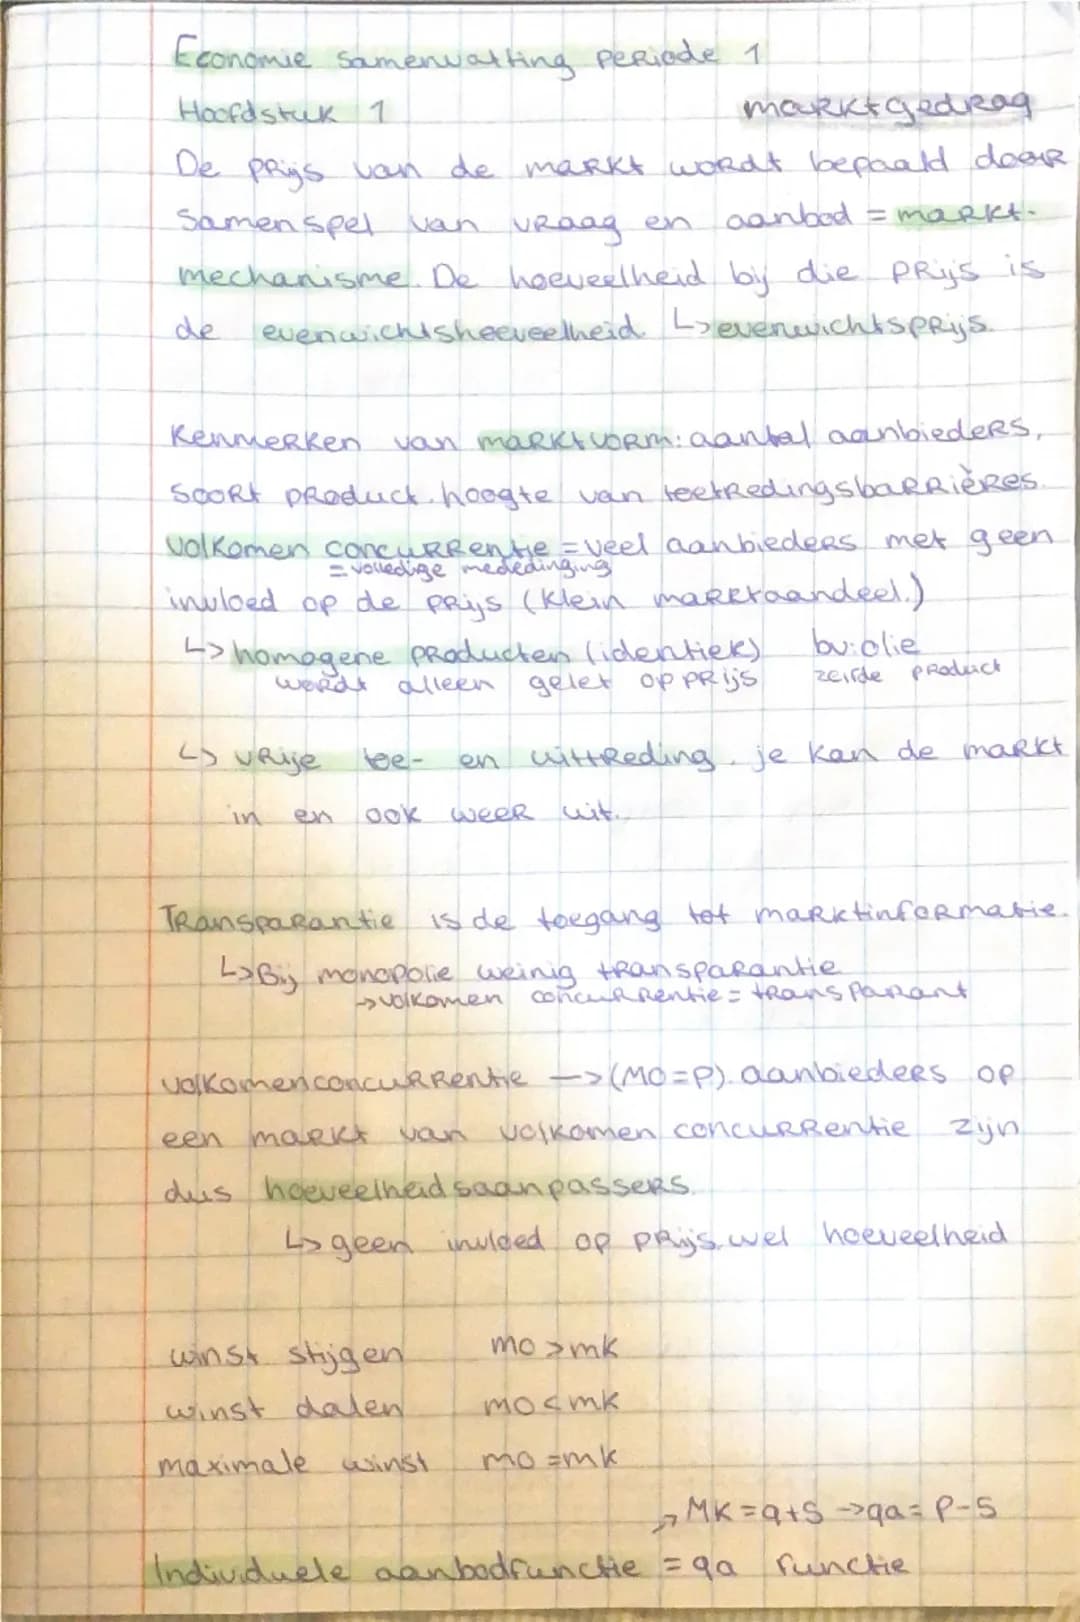 Economie samenvatting periode 1
Hoofdstuk 1 marktgedrag
De prijs van de markt wordt bepaald door
samenspel van vraag en aanbod = markt-
mechanisme. De hoeveelheid bij die prijs is
de evenwichtshoeveelheid. ↳ evenwichtsprijs.
Kenmerken van marktvorm: aantal aanbieders,
soort product. hoogte van toetredingsbarrières.
volkomen concurrentie = veel aanbieders met geen
= volledige mededinging
invloed op de prijs (klein marktaandeel.)
↳ homogene producten (identiek) bv: olie
wordt alleen gelet op prijs zelfde product
↳ vrije toe- en uittreding. je kan de markt
in en ook weer uit.
Transparantie is de toegang tot marktinformatie.
↳ Bij monopolie weinig transparantie
→ volkomen concurrentie = transparant
volkomen concurrentie —> (MO=P). aanbieders op
een markt van volkomen concurrentie zijn
dus hoeveelheidsaanpassers.
↳ geen invloed op prijs. wel hoeveelheid
winst stijgen mo > mk
winst dalen mo < mk
maximale winst mo = mk
→ MK = q+5 → qa = P-5
Individuele aanbodfunctie = qa functie